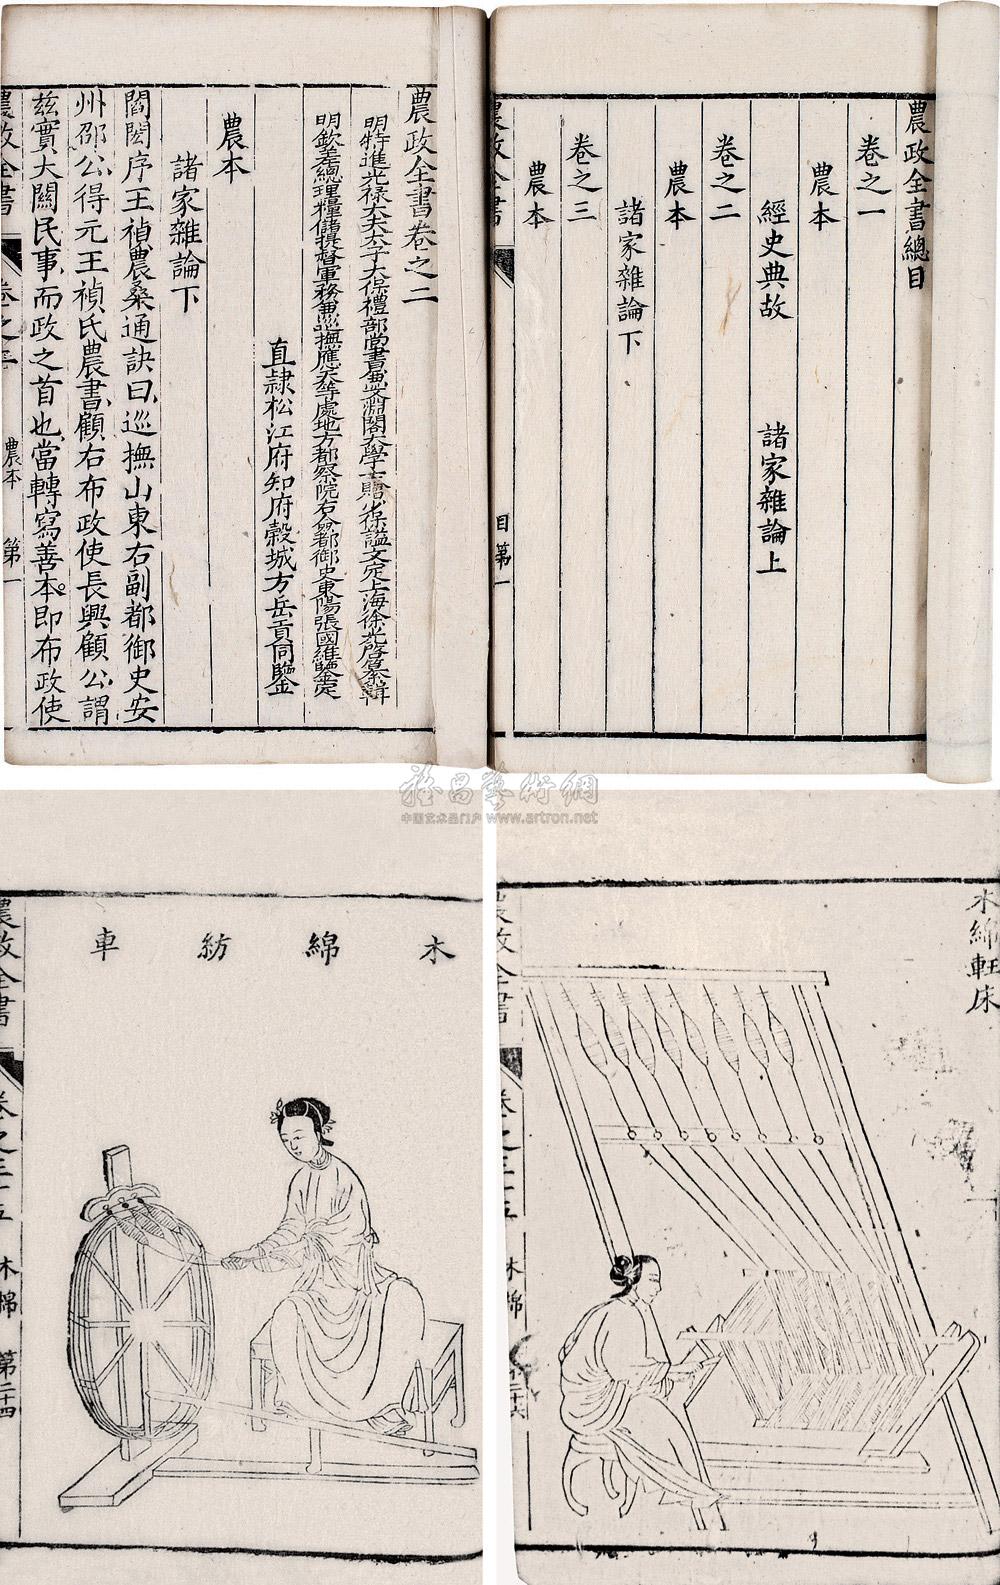 農政全書總目
卷之一
農本
經史典故
諸家雜論上
卷之二
農本
諸家雜論下
卷之三
農本
目
第一
農政全書卷之二
明特進光祿大夫太子太保禮部尚書兼文淵閣大學士贈少保謚文定上海徐光啓纂輯
明欽差總理糧儲提督軍務兼巡撫應天等處地方都察院右僉都御史東陽張國維鑒定
直隸松江府知府穀城方岳貢同鑒
農本
諸家雜論下
閻閎序王禎農桑通訣曰巡撫山東右副都御史安
州邵公得元王禎氏農書顧右布政使長興顧公謂
茲實大關民事而政之首也當轉寫善本即布政使
農政全書
卷之二
農本
第一
雅昌藝術網
中国艺术品门户 www.artron.net
木綿軠床
農政全書
卷之三十五
木棉
木綿紡車
農政全書
卷之三十五
木棉
第二十四